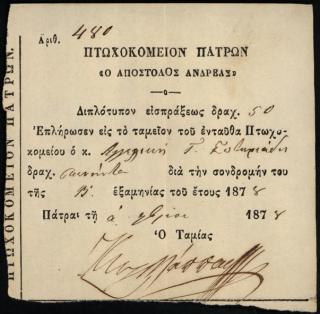 Ἀριθ. 480
ΠΤΩΧΟΚΟΜΕΙΟΝ ΠΑΤΡΩΝ
«Ο ΑΠΟΣΤΟΛΟΣ ΑΝΔΡΕΑΣ»
Διπλότυπον εἰσπράξεως δραχ. 50
Ἐπλήρωσεν εἰς τὸ ταμεῖον τοῦ ἐνταῦθα Πτωχο-
κομείου ὁ κ.
δραχ. πεντήκοντα διὰ τὴν συνδρομήν του
τῆς Β΄. ἑξαμηνίας τοῦ ἔτους 1878
Πάτραι τῇ 1878
Ὁ Ταμίας
ΠΤΩΧΟΚΟΜΕΙΟΝ ΠΑΤΡΩΝ.